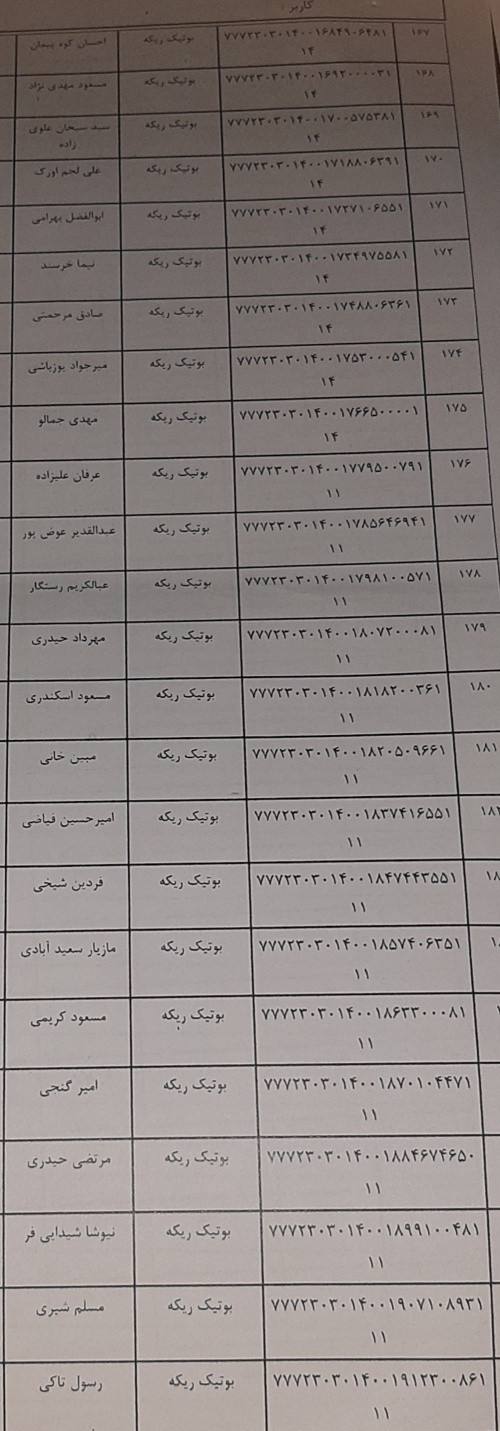 کاربر
۱۶۷ ۷۷۷۲۳۰۳۰۱۴۰۰۱۶۸۴۹۰۶۴۸۱ بوتیک ریکه احسان کوه پیمان
۱۴
۱۶۸ ۷۷۷۲۳۰۳۰۱۴۰۰۱۶۹۲۰۰۰۰۳۱ بوتیک ریکه مسعود مهدی نژاد
۱۴
۱۶۹ ۷۷۷۲۳۰۳۰۱۴۰۰۱۷۰۰۵۷۵۳۸۱ بوتیک ریکه سید سبحان علوی
۱۴ زاده
۱۷۰ ۷۷۷۲۳۰۳۰۱۴۰۰۱۷۱۸۸۰۶۳۹۱ بوتیک ریکه علی لجم اورک
۱۴
۱۷۱ ۷۷۷۲۳۰۳۰۱۴۰۰۱۷۲۷۱۰۶۵۵۱ بوتیک ریکه ابوالفضل بهرامی
۱۴
۱۷۲ ۷۷۷۲۳۰۳۰۱۴۰۰۱۷۳۴۹۷۵۵۸۱ بوتیک ریکه نیما خرسند
۱۴
۱۷۳ ۷۷۷۲۳۰۳۰۱۴۰۰۱۷۴۸۸۰۶۳۶۱ بوتیک ریکه صادق مرحمتی
۱۴
۱۷۴ ۷۷۷۲۳۰۳۰۱۴۰۰۱۷۵۳۰۰۰۵۴۱ بوتیک ریکه میرجواد یوزباشی
۱۴
۱۷۵ ۷۷۷۲۳۰۳۰۱۴۰۰۱۷۶۶۵۰۰۰۰۱ بوتیک ریکه مهدی جمالو
۱۴
۱۷۶ ۷۷۷۲۳۰۳۰۱۴۰۰۱۷۷۹۵۰۰۷۹۱ بوتیک ریکه عرفان علیزاده
۱۱
۱۷۷ ۷۷۷۲۳۰۳۰۱۴۰۰۱۷۸۵۶۴۶۹۴۱ بوتیک ریکه عبدالقدیر عوض پور
۱۱
۱۷۸ ۷۷۷۲۳۰۳۰۱۴۰۰۱۷۹۸۱۰۰۵۷۱ بوتیک ریکه عبالکریم رستگار
۱۱
۱۷۹ ۷۷۷۲۳۰۳۰۱۴۰۰۱۸۰۷۲۰۰۰۸۱ بوتیک ریکه مهرداد حیدری
۱۱
۱۸۰ ۷۷۷۲۳۰۳۰۱۴۰۰۱۸۱۸۲۰۰۳۶۱ بوتیک ریکه مسعود اسکندری
۱۱
۱۸۱ ۷۷۷۲۳۰۳۰۱۴۰۰۱۸۲۰۵۰۹۶۶۱ بوتیک ریکه مبین خانی
۱۱
۷۷۷۲۳۰۳۰۱۴۰۰۱۸۳۷۴۱۶۵۵۱ بوتیک ریکه امیرحسین فیاضی
۱۱
۷۷۷۲۳۰۳۰۱۴۰۰۱۸۴۷۴۴۳۵۵۱ بوتیک ریکه فردین شیخی
۱۱
۷۷۷۲۳۰۳۰۱۴۰۰۱۸۵۷۴۰۶۳۵۱ بوتیک ریکه مازیار سعید آبادی
۱۱
۷۷۷۲۳۰۳۰۱۴۰۰۱۸۶۳۳۰۰۰۸۱ بوتیک ریکه مسعود کریمی
۱۱
۷۷۷۲۳۰۳۰۱۴۰۰۱۸۷۰۱۰۴۴۷۱ بوتیک ریکه امیر گنجی
۱۱
۷۷۷۲۳۰۳۰۱۴۰۰۱۸۸۴۶۷۴۶۵۰ بوتیک ریکه مرتضی حیدری
۱۱
۷۷۷۲۳۰۳۰۱۴۰۰۱۸۹۹۱۰۰۴۸۱ بوتیک ریکه نیوشا شیدایی فر
۱۱
۷۷۷۲۳۰۳۰۱۴۰۰۱۹۰۷۱۰۸۹۳۱ بوتیک ریکه مسلم شیری
۱۱
۷۷۷۲۳۰۳۰۱۴۰۰۱۹۱۲۳۰۰۸۶۱ بوتیک ریکه رسول تاکی
۱۱